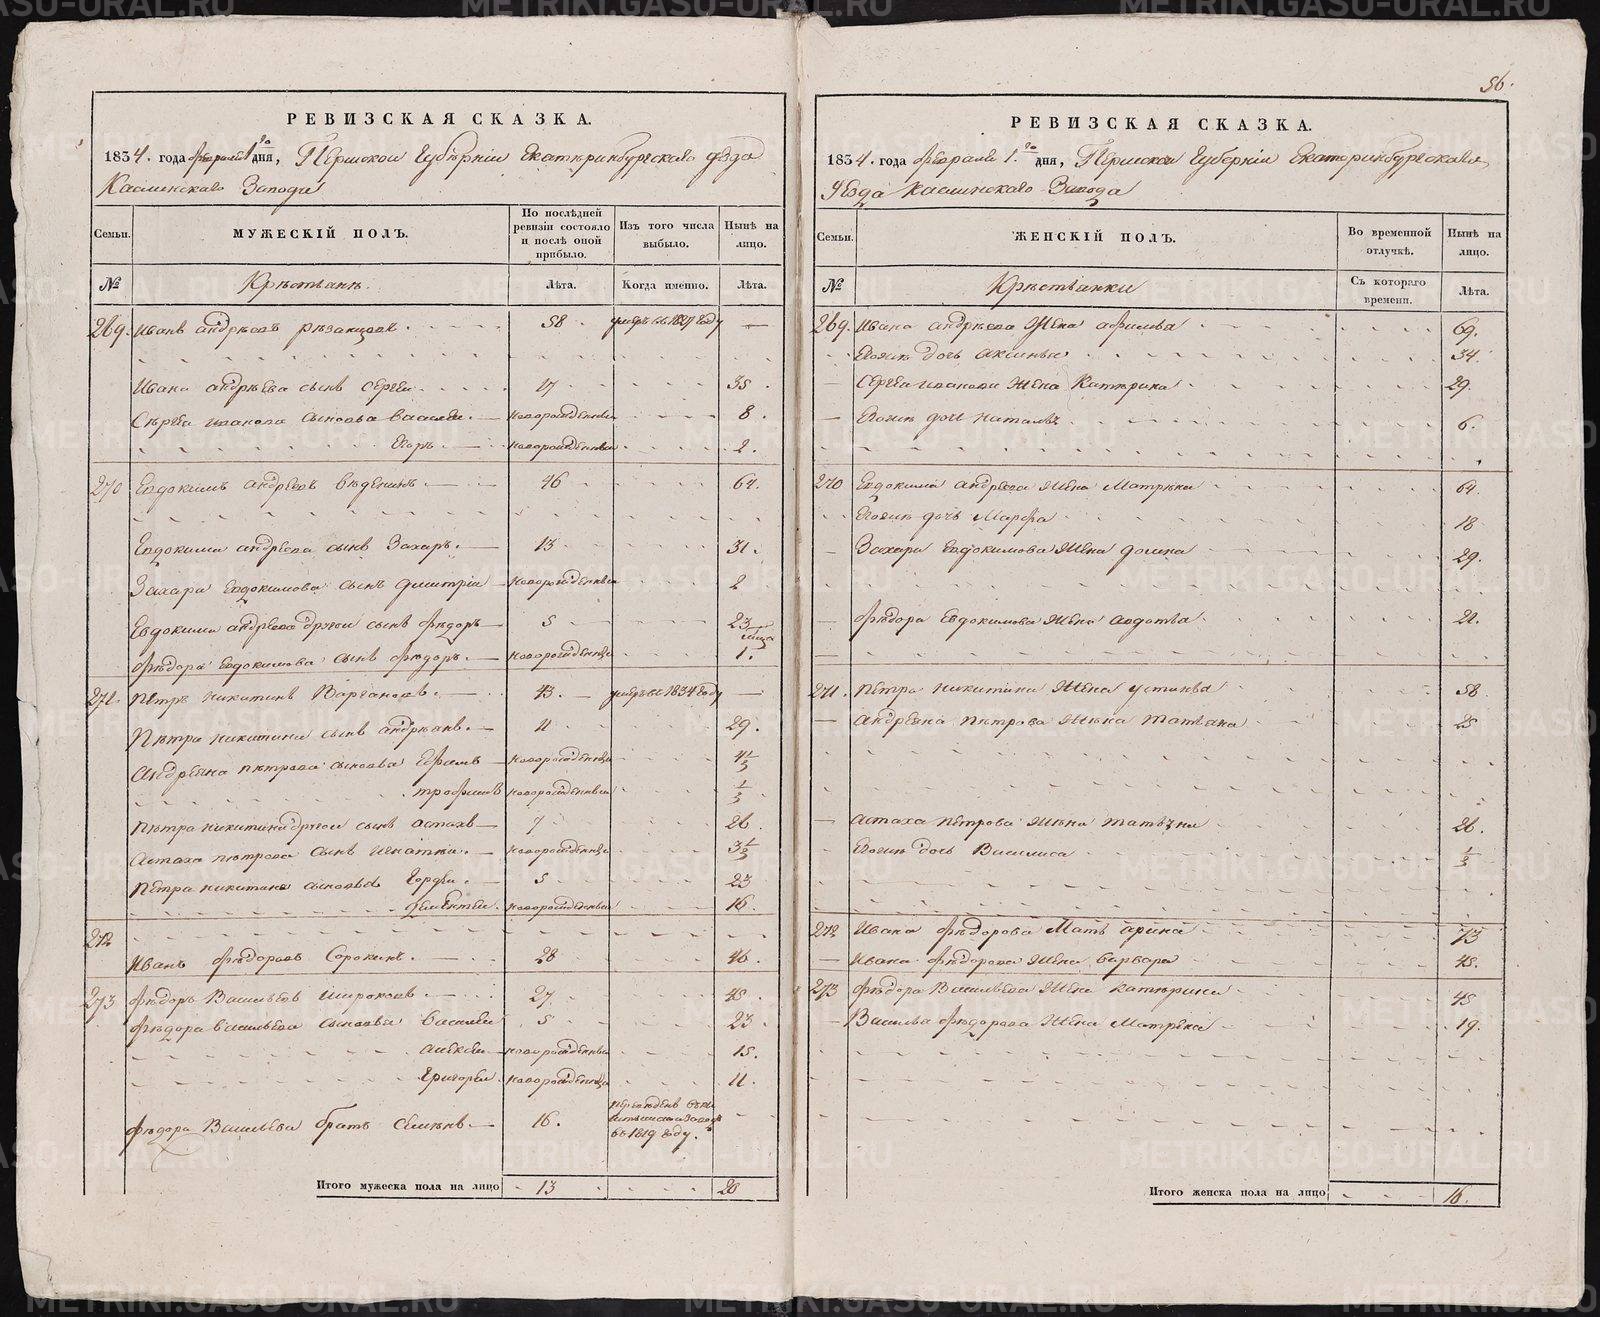 56.
РЕВИЗСКАЯ СКАЗКА.
1834. года февраля 1го дня, Пермской Губерніи Екатеринбургскаго уезда
Каслинскаго Завода
Семьи.
МУЖЕСКІЙ ПОЛЪ.
По послѣдней ревизіи состояло и послѣ оной прибыло.
Изъ того числа выбыло.
Нынѣ на лицо.
№
Крѣстьянѣ.
Лѣта.
Когда именно.
Лѣта.
269. Иванъ андрѣевъ рѣзанцовъ 58 умеръ въ 1827 году —
Ивана андрѣева сынъ сергѣй 17 35.
Сѣргѣя иванова сыновья василей. новорожденный 8.
Егоръ. новорожденный 2.
270 Евдокимъ андреевъ 46 64.
Евдокима андреева сынъ Захаръ. 13 31.
Захара Евдокимова сынъ дмитріи новорожденный 2
Евдокима андреева другой сынъ фѣдоръ 5 23
фѣдора Евдокимова сынъ фѣдоръ. новорожденный 1.
271. Пѣтръ никитинъ Варгановъ. 43. умеръ въ 1834 году —
Пѣтра никитина сынъ андрѣянъ. 11 29.
Андреяна пѣтрова сыновья Ефимъ новорожденный 4 1/3
трофимъ новорожденный 1/3
пѣтра никитина другой сынъ астахъ 7 26
Астаха пѣтрова сынъ игнатѣй. новорожденный 3 1/3
пѣтра никитина сыновья Гордѣй. 5 23
дементей. новорожденный 16.
272
Иванъ фѣдоровъ Сорокинъ. 28 46.
273 фѣдоръ Васильевъ широковъ 27. 45.
фѣдора васильева сыновья Василей 5 23.
алексѣй новорожденный 15.
Григорей. новорожденный 11.
фѣдора Васильева братъ Семѣнъ. 16. въ 1819 году.
Итого мужеска пола на лицо 13 20
РЕВИЗСКАЯ СКАЗКА.
1834. года февраля 1.го дня, Пермской Губерніи Екатеринбургскаго
уезда Каслинскаго Завода
Семьи.
ЖЕНСКІЙ ПОЛЪ.
Во временной отлучкѣ.
Нынѣ на лицо.
№
Крѣстьянки
Съ котораго времени.
Лѣта.
269. Ивана андрѣева жена афимья 69.
Егожъ дочь аксинья 34.
Сергѣя иванова жена Катѣрина 29.
Егожъ дочь наталья 6.
270 Евдокима андреева жена Матрѣна 64.
Егожъ дочь Марфа 18
Захара Евдокимова жена домна 29.
фѣдора Евдокимова жена авдотья 22.
271. Пѣтра никитина жена устинья 58.
андреяна пѣтрова жѣна татьяна 25
астаха пѣтрова жѣна татьяна 26.
Егожъ дочь Василиса 1/3
272 Ивана фѣдорова Мать арина 73
Ивана фѣдорова жена варвара 45.
273 фѣдора Васильева жена катѣрина 45
Василья фѣдорова жена Матрена 19.
Итого женска пола на лицо 16.
METRIKI.GASO-URAL.RU